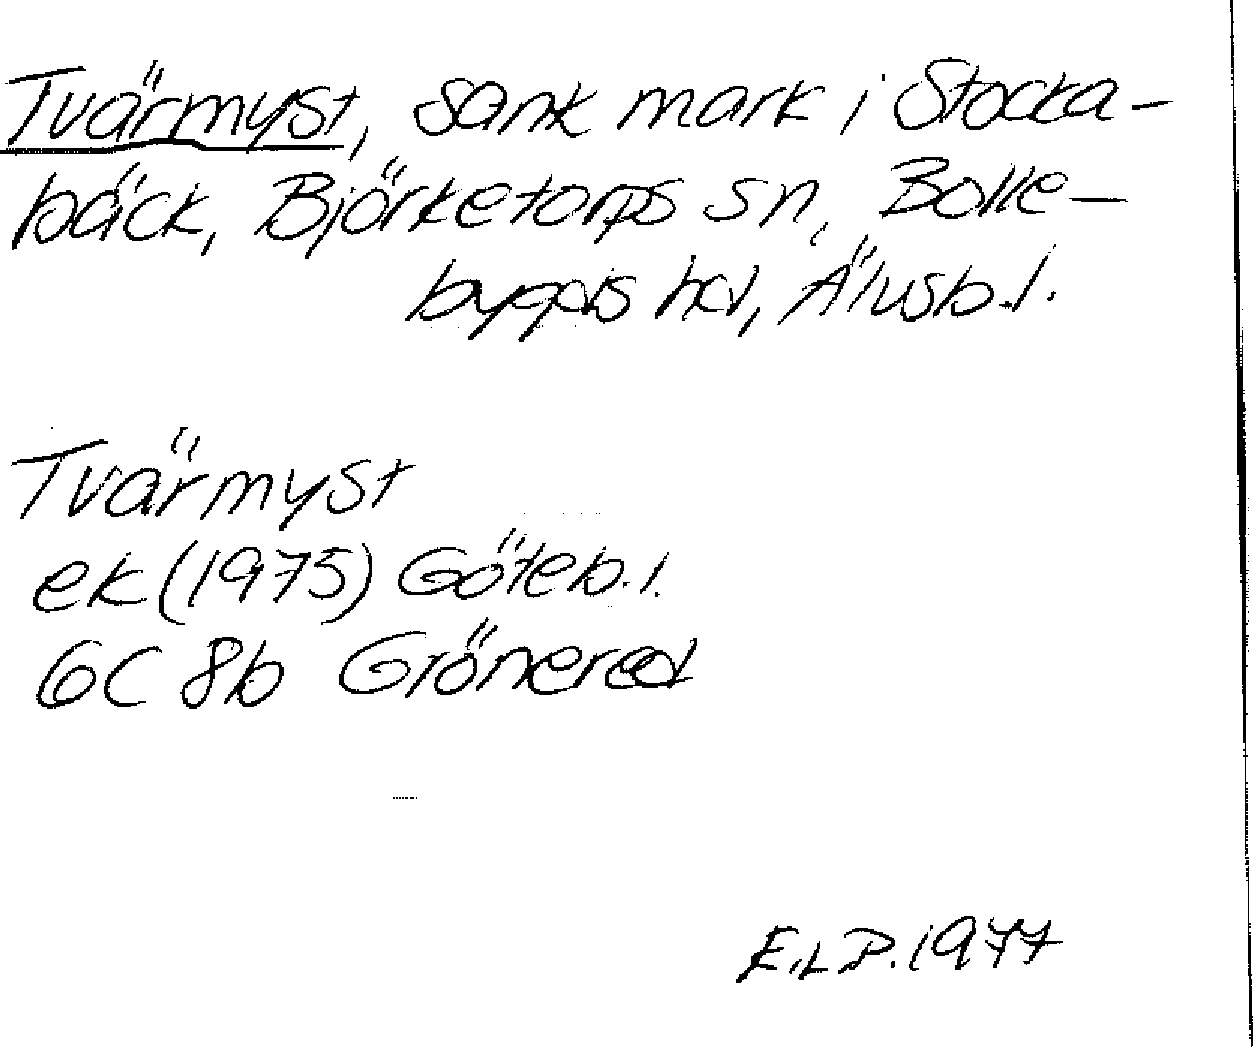 Tvärmyst, sank mark i Stocka-
bäck, Björketorps sn, Bolle-
bygds hd, Älvsb.l.
Tvärmyst
ek (1975) Göteb.l.
6C 8b Grönered
E.L P. 1977